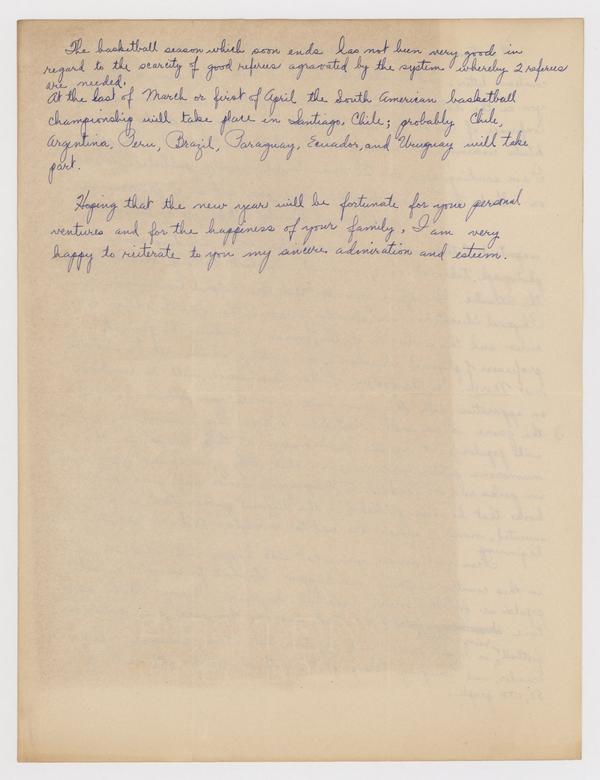 The basketball season which soon ends has not been very good in
regard to the scarcity of good referees agravated by the system whereby 2 referees
are needed.
At the last of March or first of April the South American basketball
championship will take place in Santiago, Chile; probably Chile,
Argentina, Peru, Brazil, Paraguay, Ecuador, and Uruguay will take
part.
Hoping that the new year will be fortunate for your personal
ventures and for the happiness of your family, I am very
happy to reiterate to you my sincere admiration and esteem.